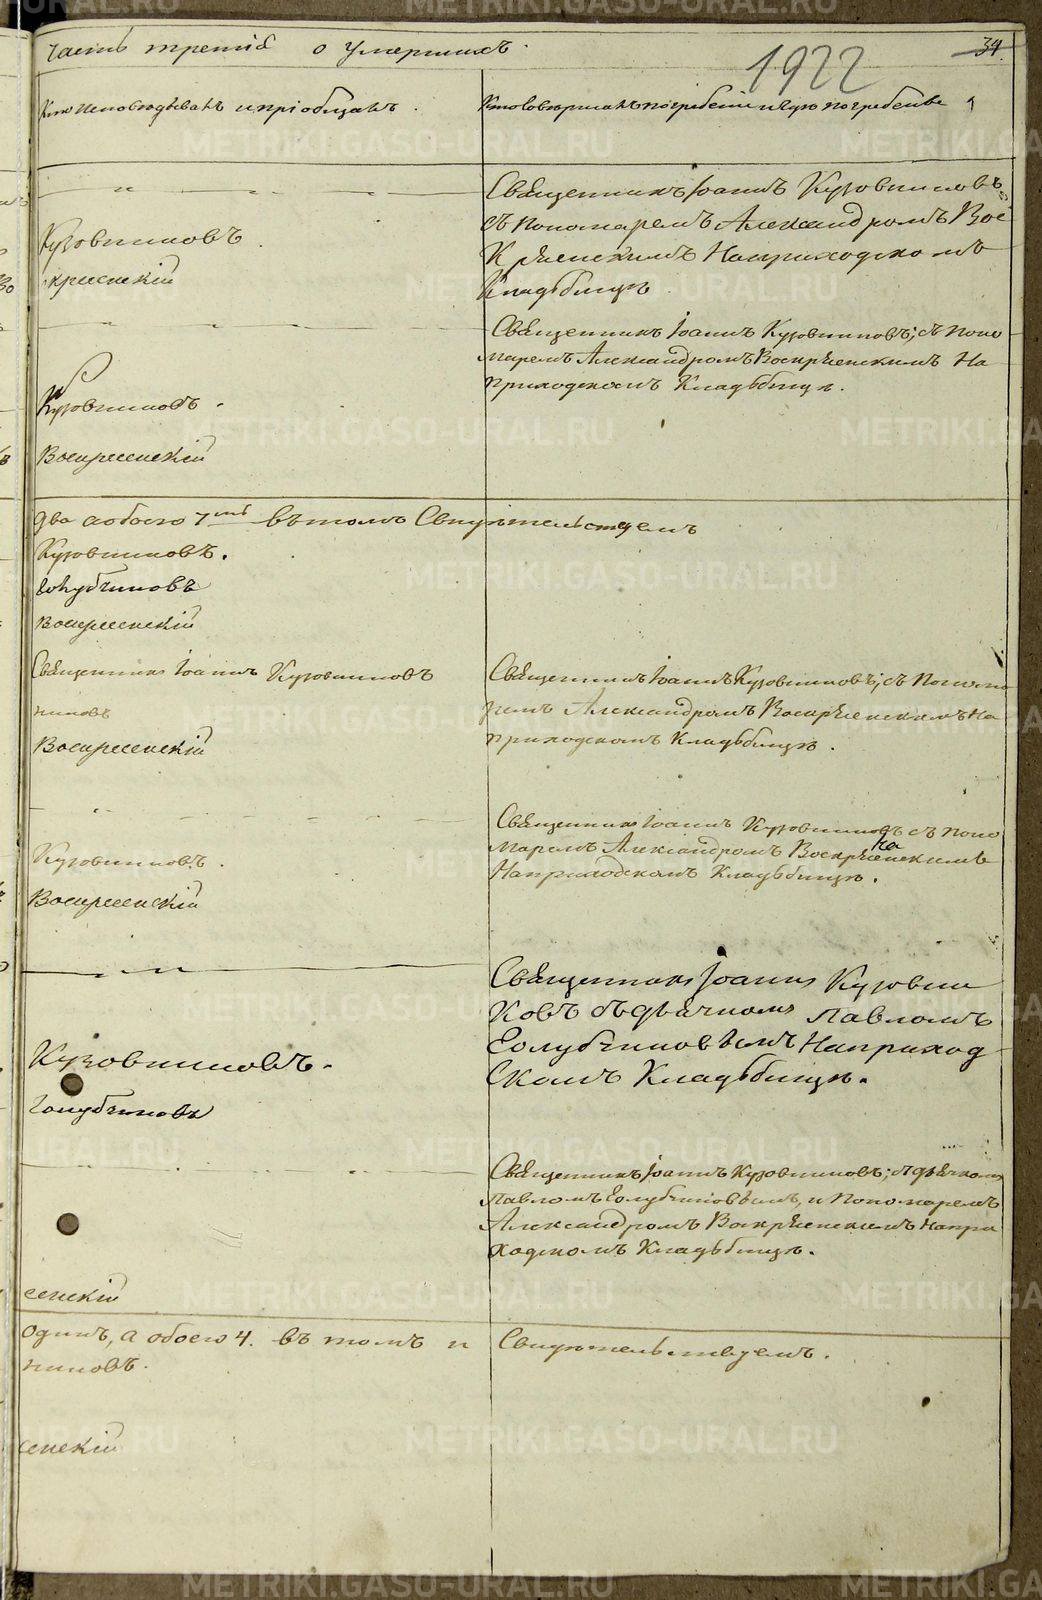 часть третія о умершихъ.
1922
34.
Кто исповѣдывалъ и пріобщалъ.
Кто совершалъ погребеніе и гдѣ погребены
Священникъ Іоаннъ Кузовниковъ,
съ пономаремъ Александромъ Вос
Кресенскимъ На приходскомъ
Кладбищѣ
Кузовниковъ
кресенскій
Священникъ Іоаннъ Кузовниковъ; съ поно
маремъ Александромъ Воскресенскимъ На
приходскомъ Кладбищѣ.
Кузовниковъ.
Воскресенскій
два а обоего 7 въ томъ Свидѣтельствуемъ
Кузовниковъ.
Голубчиковъ
Воскресенскій
Священникъ Іоаннъ Кузовниковъ
никовъ
Воскресенскій
Священникъ Іоаннъ Кузовниковъ; съ Понома
ремъ Александромъ Воскресенскимъ На
приходскомъ Кладбищѣ.
Кузовниковъ.
Воскресенскій
Священникъ Іоаннъ Кузовниковъ съ поно
маремъ Александромъ Воскресенскимъ
На
На приходскомъ Кладбищѣ.
Священникъ Іоаннъ Кузовни
ковъ съ дьячкомъ Павломъ
Голубчиковымъ На приход
скомъ Кладбищѣ.
Кузовниковъ.
Голубчиковъ
Священникъ Іоаннъ Кузовниковъ; съ дьячкомъ
Павломъ Голубчиковымъ, и Пономаремъ
Александромъ Воскресенскимъ На при
ходскомъ Кладбищѣ.
сенскій
одинъ, а обоего 4. въ томъ и Свидѣтельствуемъ.
никовъ.
сенскій
METRIKI.GASO-URAL.RU